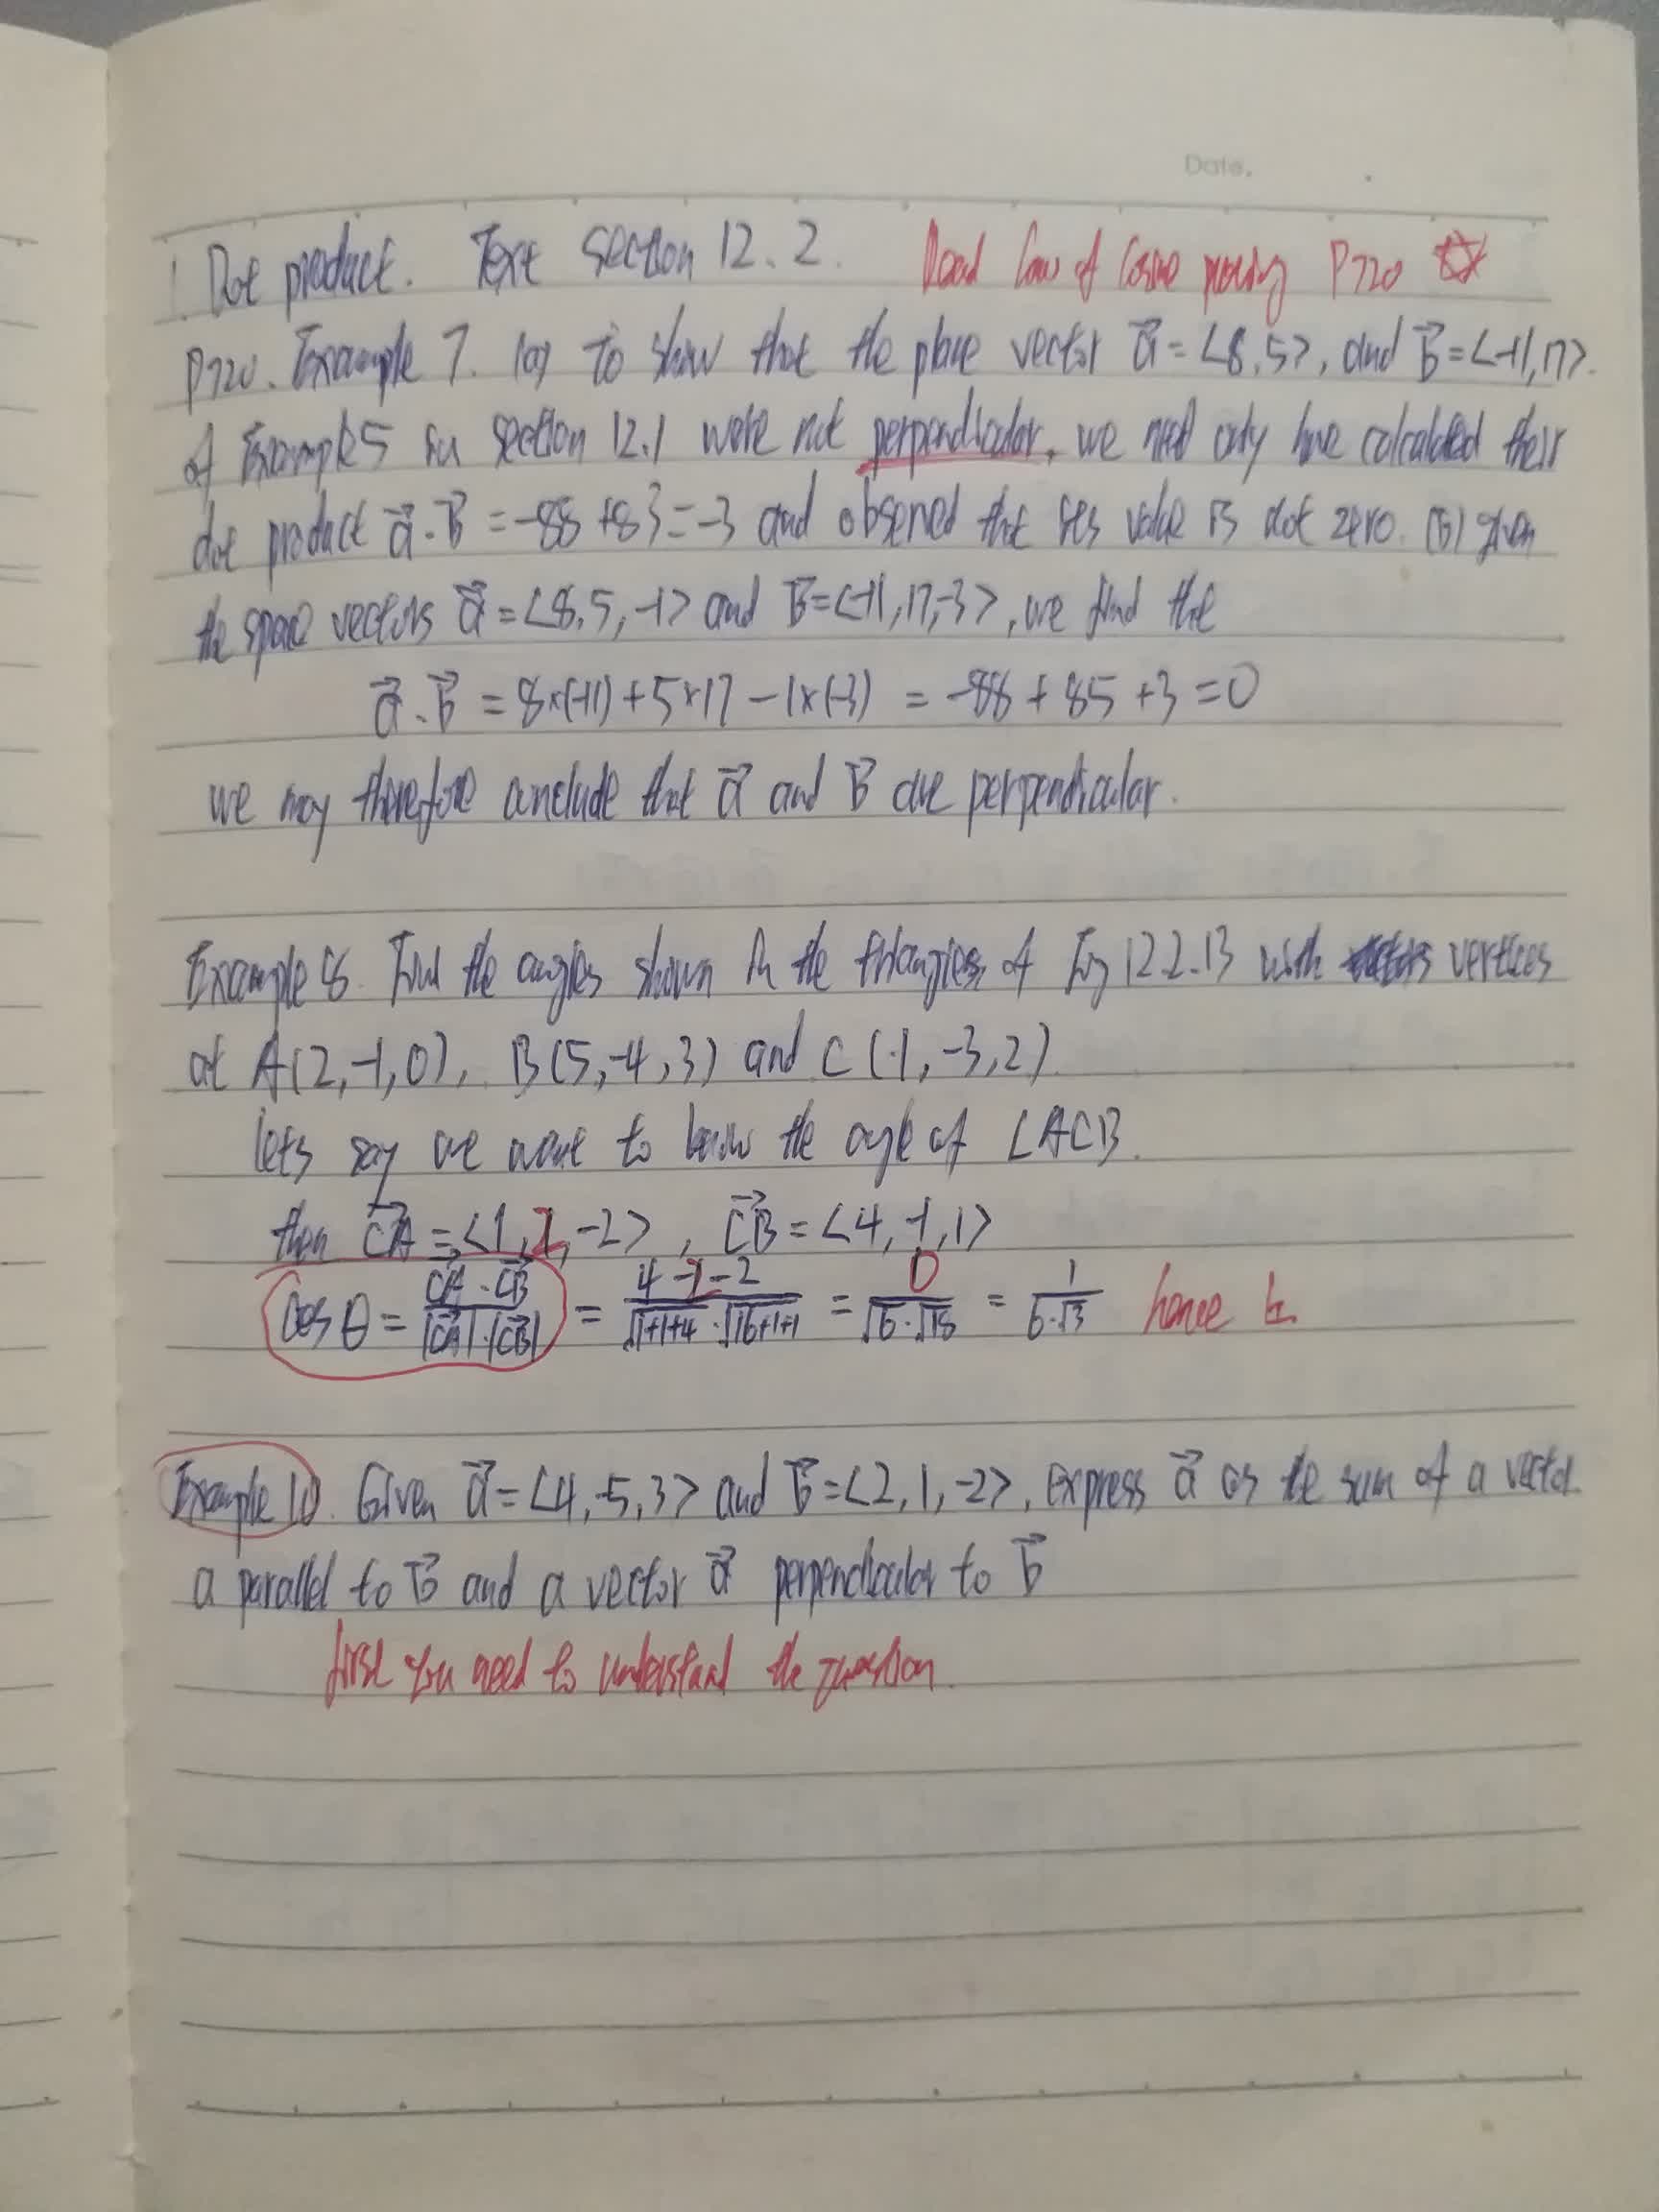 Date.
1. Dot product. Text Section 12.2. Read law of cosine proving P720
P720. Example 7. (a) To show that the plane vector a⃗ = <8, 5>, and b⃗ = <-11, 17>.
of Example 5 in section 12.1 were not perpendicular, we need only have calculated their
dot product a⃗·b⃗ = -88 + 83 = -3 and observed that its value is not zero. (b) given
the space vectors a⃗ = <8, 5, -1> and b⃗ = <-11, 17, -3>, we find the
a⃗·b⃗ = 8×(-11) + 5×17 - 1×(-3) = -88 + 85 + 3 = 0
we may therefore conclude that a⃗ and b⃗ are perpendicular.
Example 8. Find the angles shown in the triangles of Fig 12.2.13 with vertices
at A(2, -1, 0), B(5, -4, 3) and C(1, -3, 2)
lets say we want to know the angle of ∠ACB.
then CA⃗ = <1, 2, -2>, CB⃗ = <4, -1, 1>
cos θ = CA⃗·CB⃗ / |CA⃗|·|CB⃗| = 4-2-2 / √1+1+4 · √16+1+1 = 0 / √6·√18 = 1 / 6·√3 hence
Example 10. Given a⃗ = <4, -5, 3> and b⃗ = <2, 1, -2>, express a⃗ as the sum of a vector
a parallel to b⃗ and a vector a⃗ perpendicular to b⃗
first you need to understand the question.